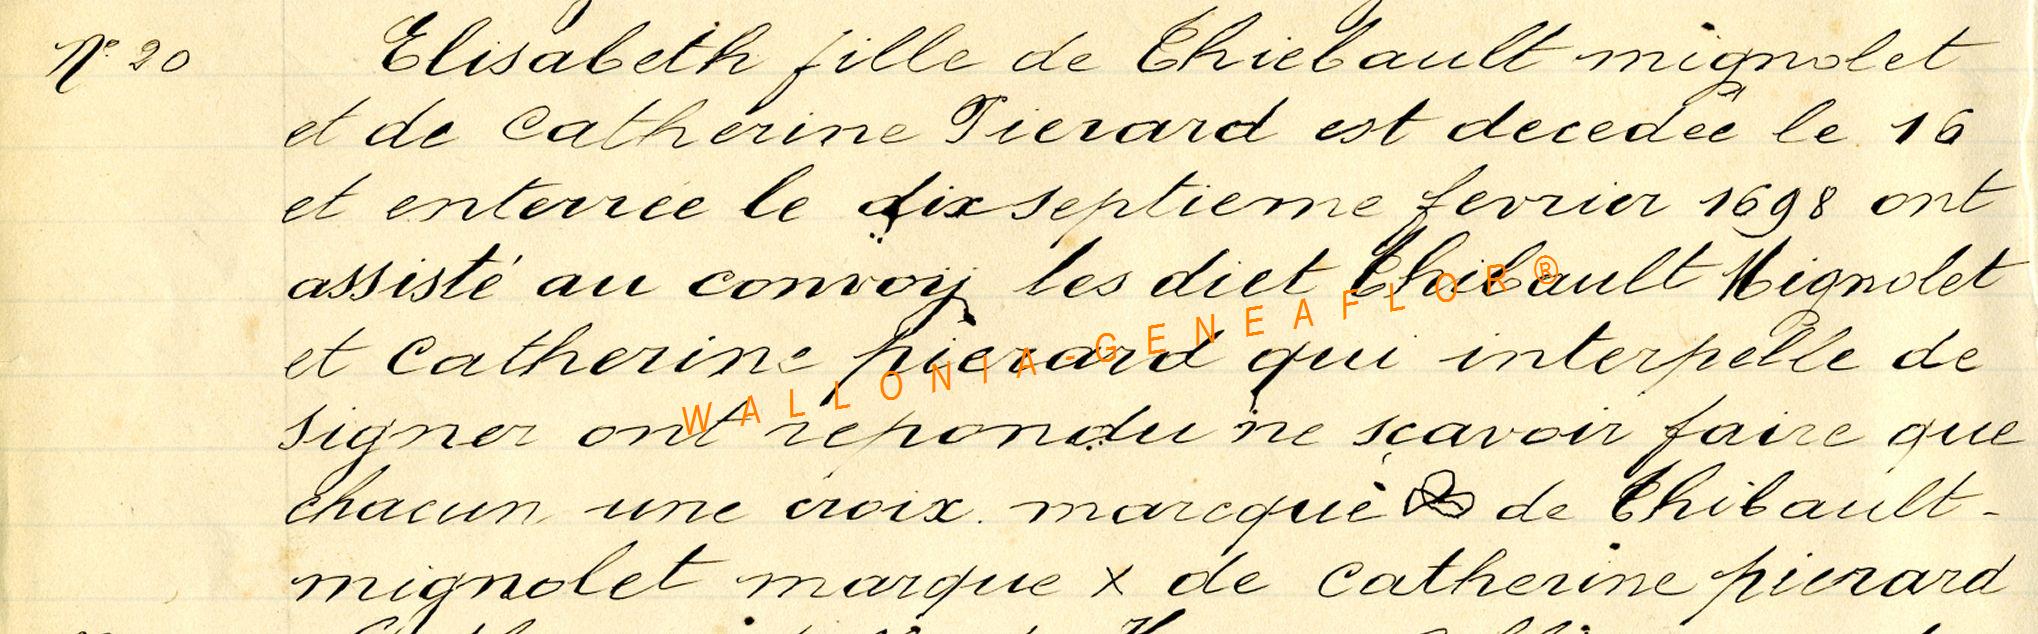 N° 20 Elisabeth fille de Thiebault mignolet
et de Catherine Pierard est decedée le 16
et enterrée le dix septieme fevrier 1698 ont
assisté au convoÿ les diet Thibault Mignolet
et Catherine pierard qui interpelle de
signer ont repondu ne sçavoir faire que
chacun une croix. marcque de Thibault -
mignolet marque x de Catherine pierard
WALLONIA-GENEAFLOR®